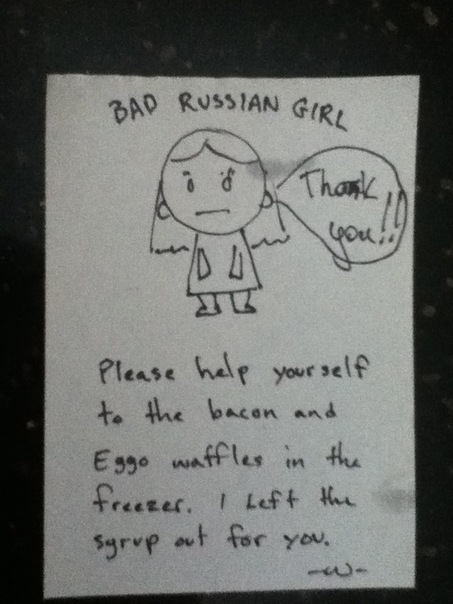 BAD RUSSIAN GIRL
Thank
you!!
Please help yourself
to the bacon and
Eggo waffles in the
freezer. I Left the
syrup out for you.
-W-